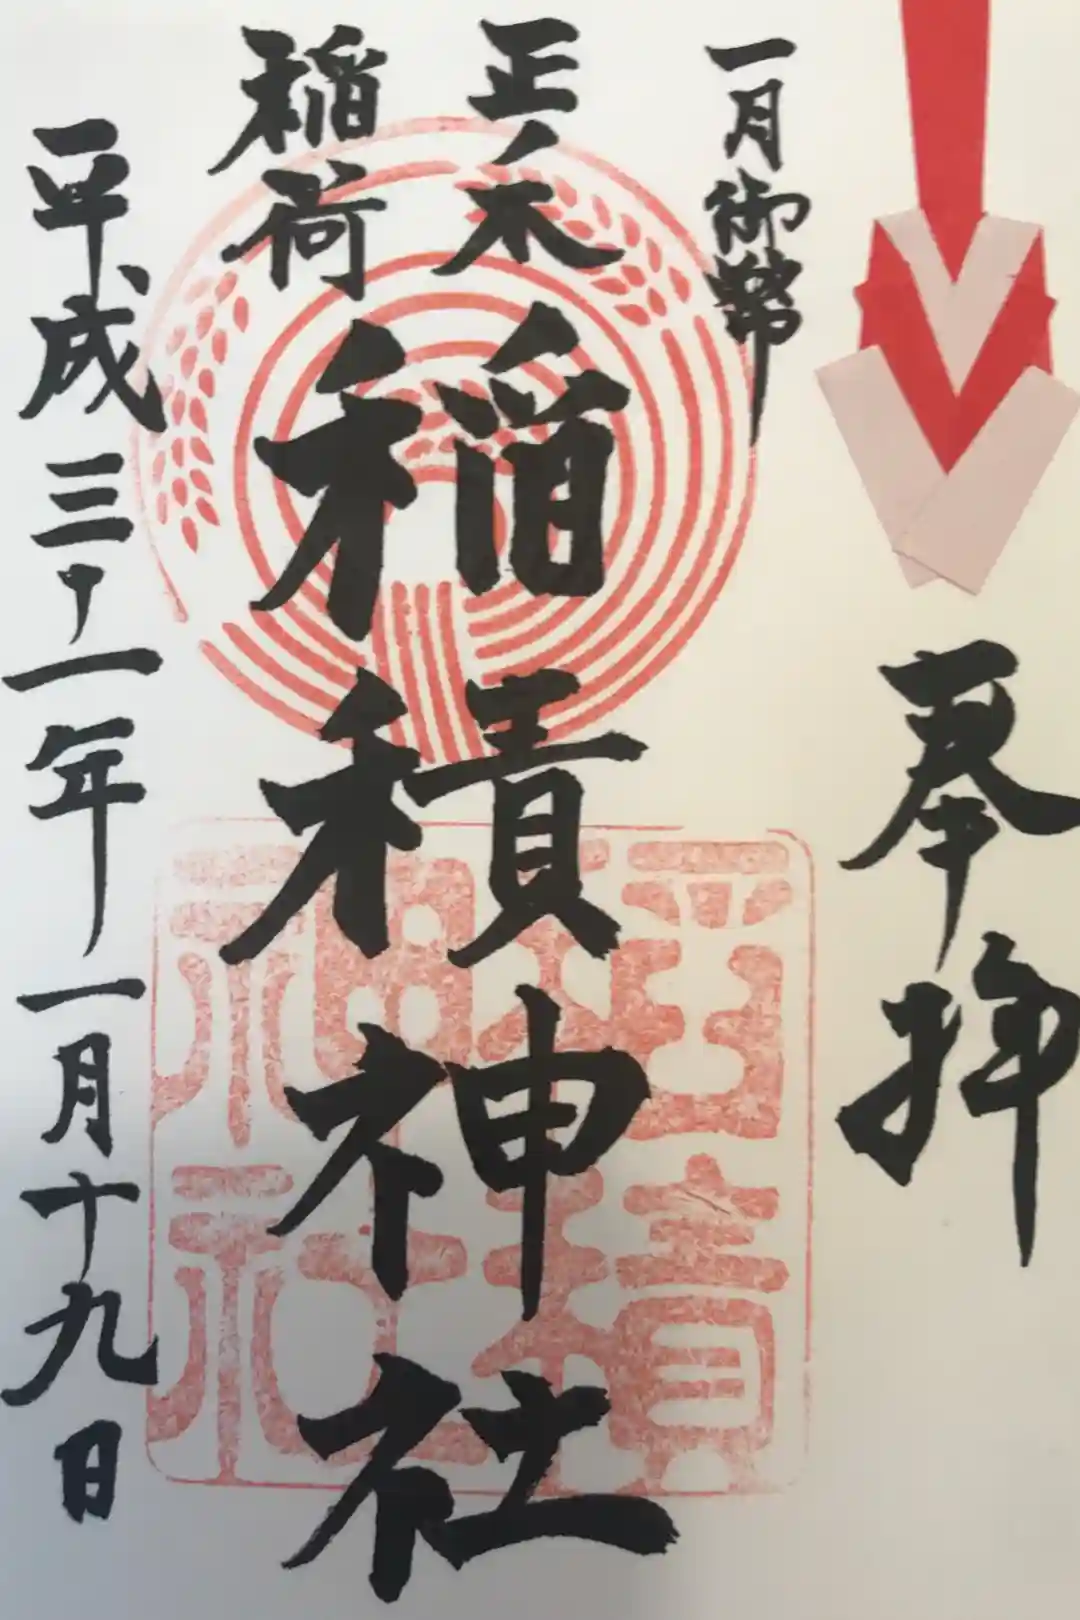 奉拝
一月御幣
正木
稲荷
稲積神社
平成三十一年一月十九日
稲積
神社